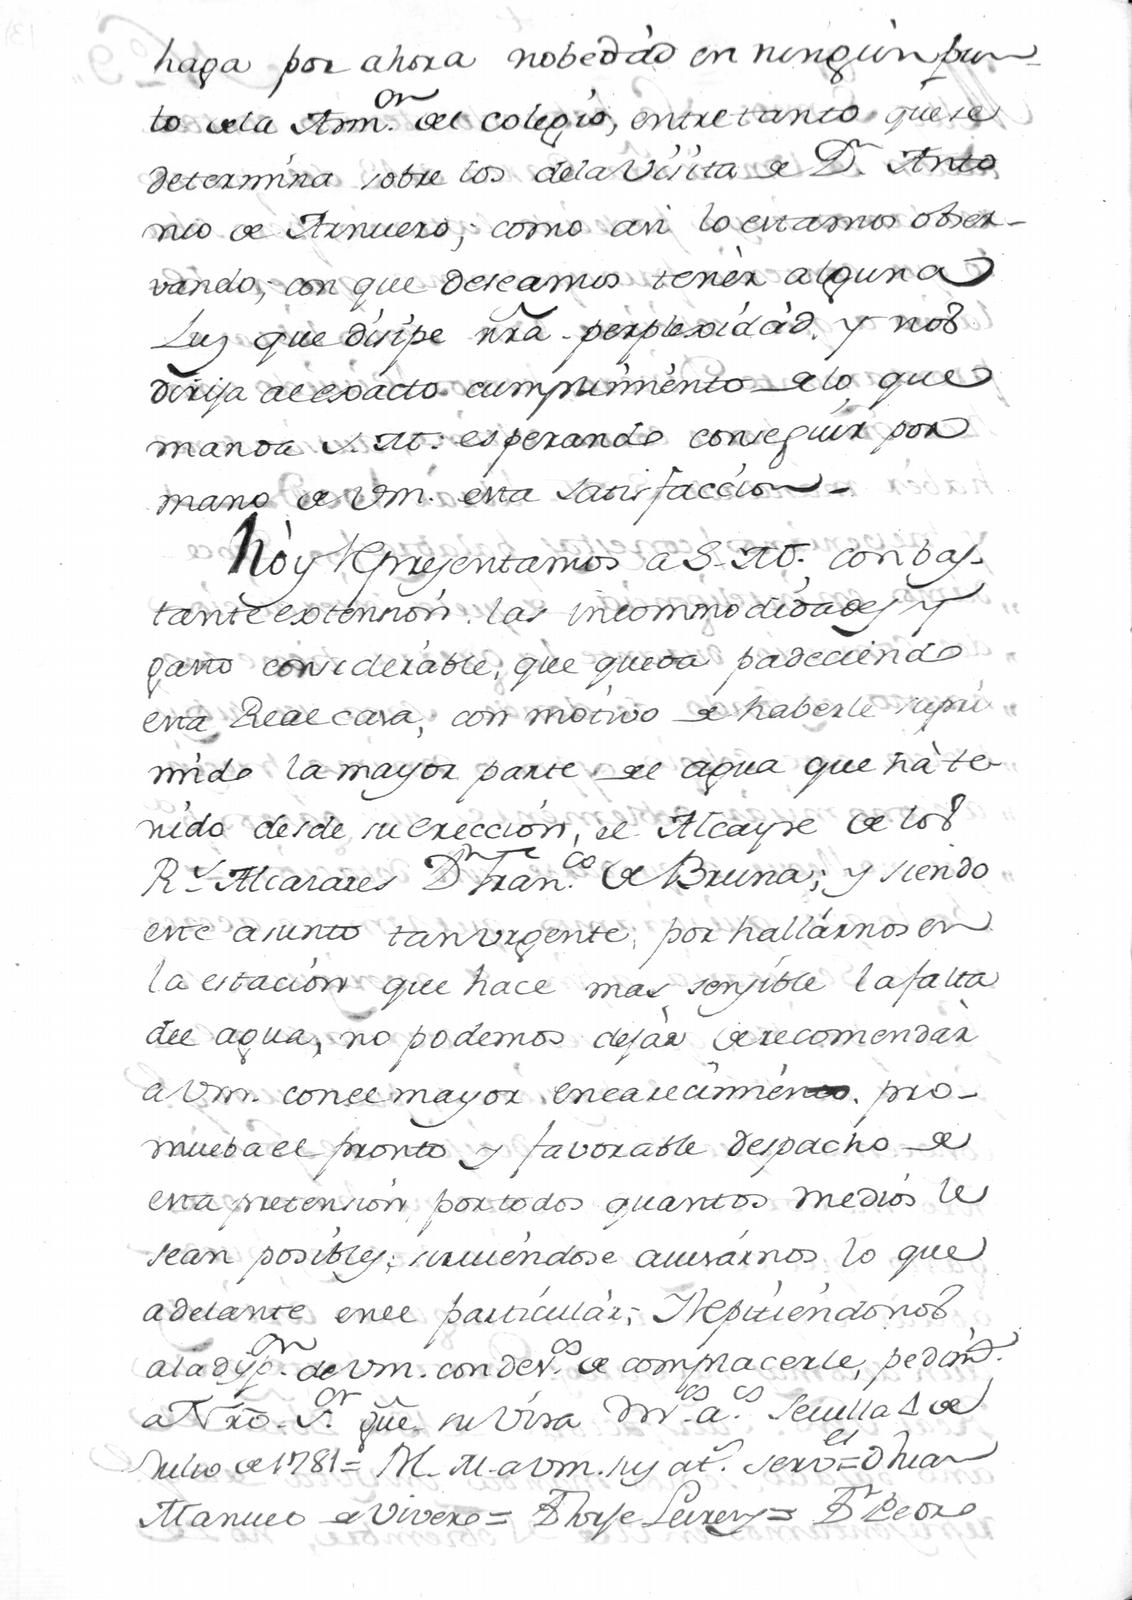 haga por ahora nobedàd en ningùn pun-
to de la Arm.on del colegio, entretanto que se
determina sobre los de la Visita de D.n Anto
nio de Arnuero; como asi lo estamos obser-
vando, con que deseamos tenèr alguna
Luz que disipe nr̃a perplexidàd, y nos
dirija al exacto cumplimiento de lo que
manda S. M. esperando conseguir por
mano de Vm. esta satisfaccion-
Hòy representamos a S. M. con bas-
tante extensiòn las incommodidades y
gasto considerable, que queda padeciendo
esta Real casa, con motivo de haberle supri
mido la mayor parte del agua que hà te-
nido desde su ereccion, el Alcayde de los
R.s Alcazares D.n Fran.co de Bruna; y siendo
este asunto tan urgente, por hallàrnos en
la estaciòn que hace mas sensible la falta
del agua, no podemos dejàr de recomendàr
a Vm. con el mayor encarecimiento pro-
mueba el pronto y favorable despacho de
esta pretensiòn por todos quantos mediòs le
sean posibles; sirviéndose avisárnos lo que
adelante en el particulàr; Repitiéndonos
a la dispp.on de Vm. con des.os de complacerle, pedim.d
a Nr̃o S.or que su Vida m.s a.s Sevilla 4 de
Julio de 1781= M. M. a Vm. sus at.s serv.es= D Juan
Manuel de Vivero= D Jorje Leirens= D.n Pedro